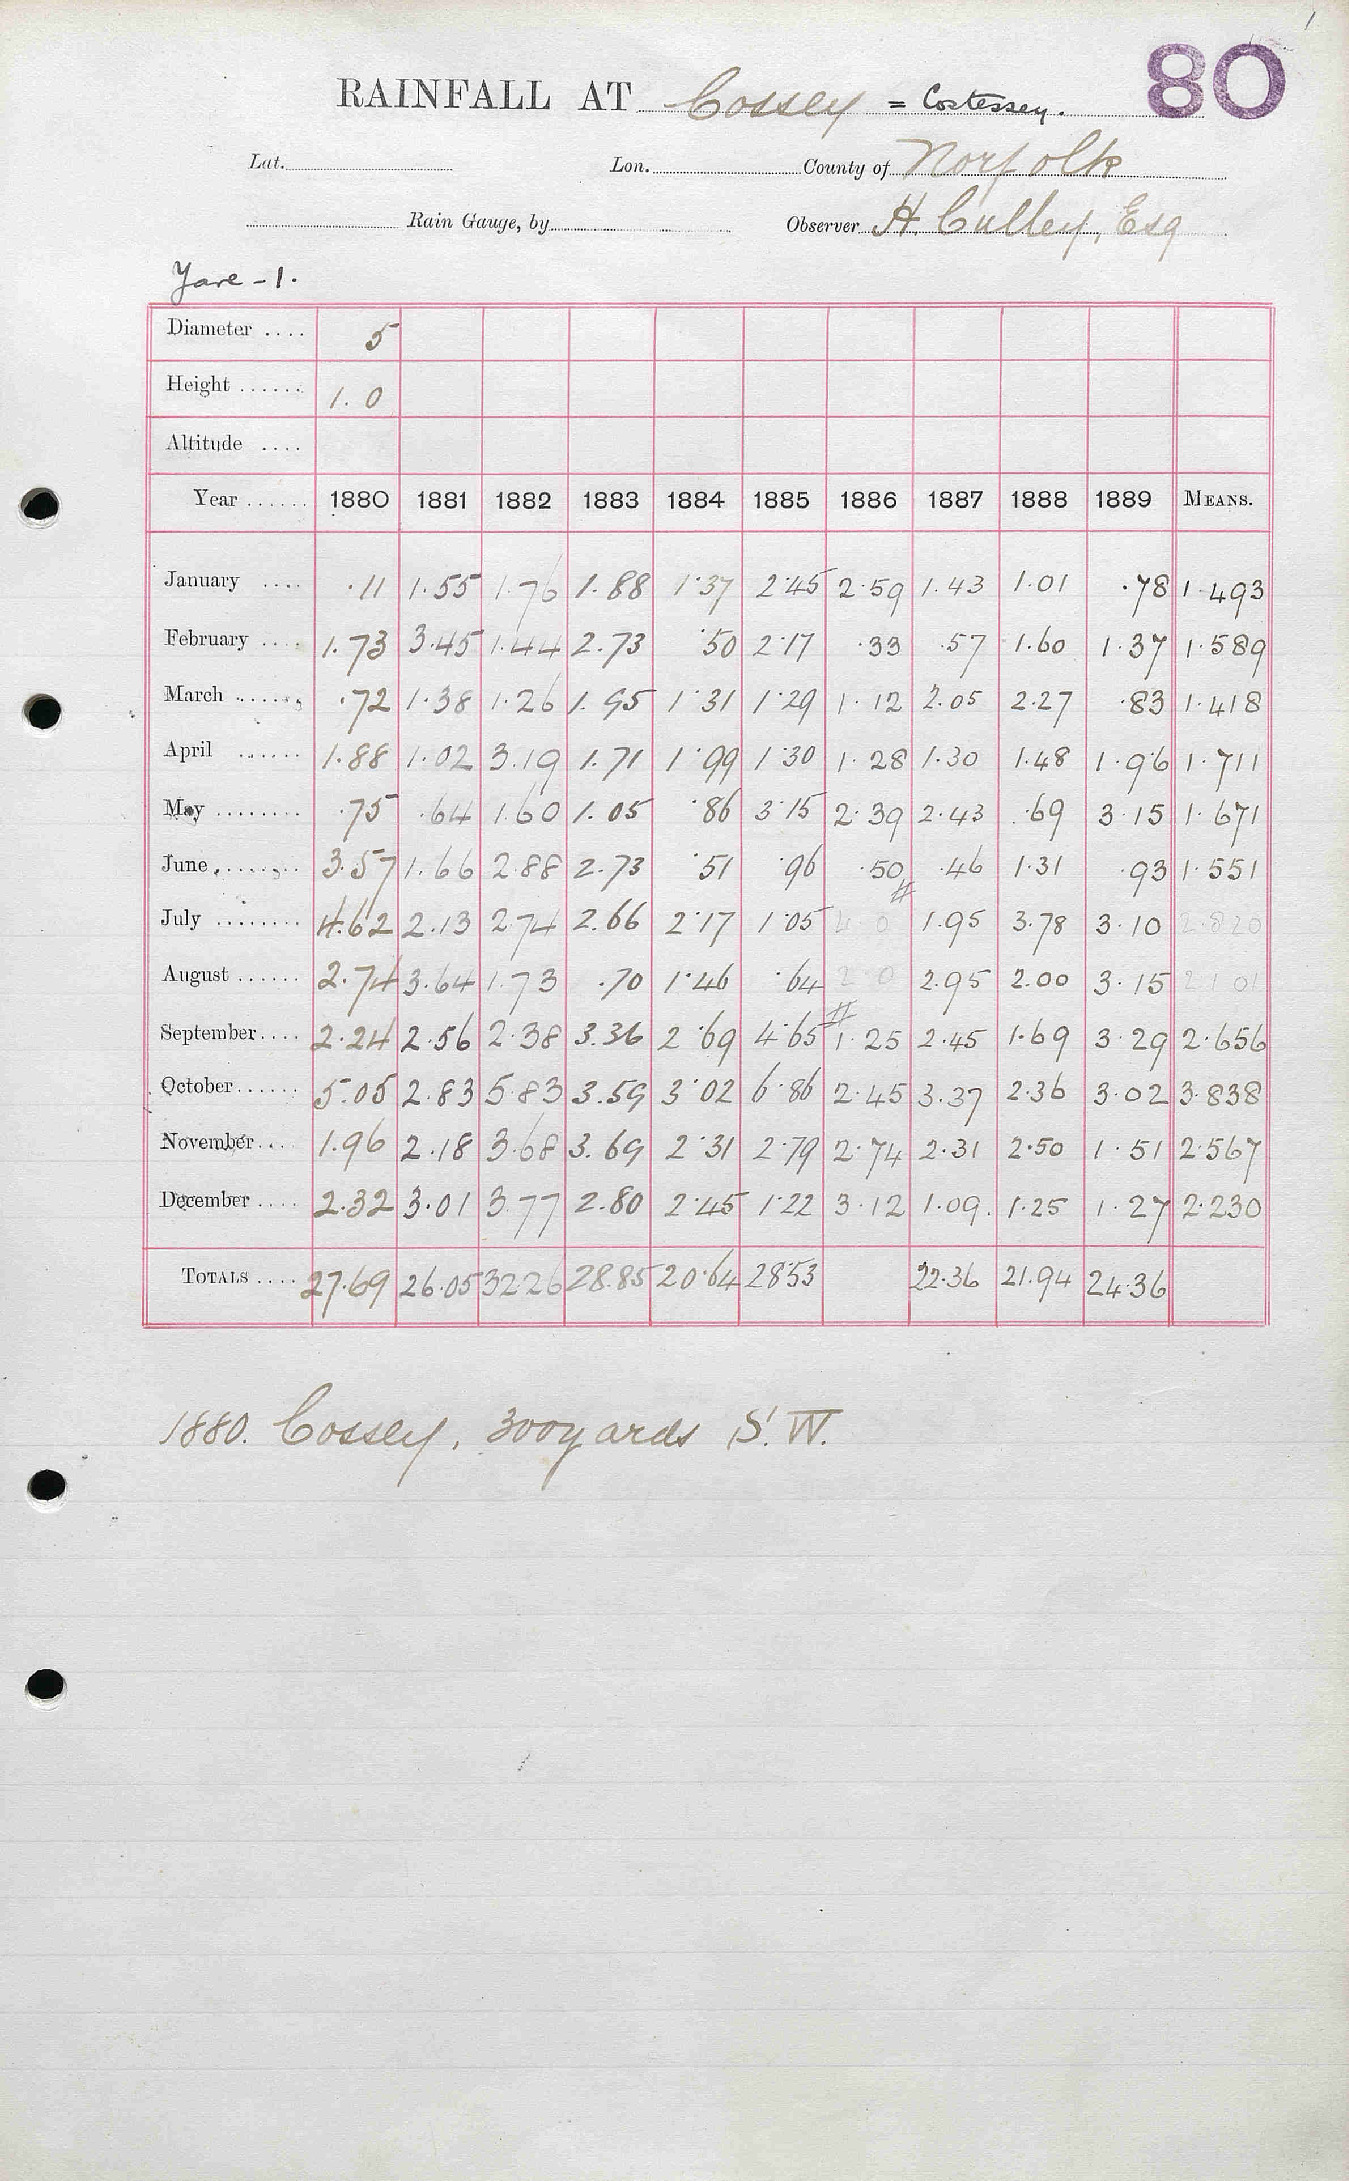 1
80
RAINFALL AT Cossey = Costessey.
Lat. Lon. County of Norfolk
Rain Gauge, by Observer H. Culley, Esq
Yare - 1.
Diameter .... 5
Height ...... 1.0
Altitude ....
Year ...... 1880 1881 1882 1883 1884 1885 1886 1887 1888 1889 MEANS.
January .... .11 1.55 1.76 1.88 1.37 2.45 2.59 1.43 1.01 .78 1.493
February .... 1.73 3.45 1.44 2.73 .50 2.17 .33 .57 1.60 1.37 1.589
March ...... .72 1.38 1.26 1.95 1.31 1.29 1.12 2.05 2.27 .83 1.418
April ...... 1.88 1.02 3.19 1.71 1.99 1.30 1.28 1.30 1.48 1.96 1.711
May ........ .75 .64 1.60 1.05 .86 3.15 2.39 2.43 .69 3.15 1.671
June ........ 3.57 1.66 2.88 2.73 .51 .96 .50 .46 1.31 .93 1.551
July ........ 4.62 2.13 2.74 2.66 2.17 1.05 1.95 3.78 3.10 2.820
August ...... 2.74 3.64 1.73 .70 1.46 .64 2.95 2.00 3.15 2.101
September .... 2.24 2.56 2.38 3.36 2.69 4.65 1.25 2.45 1.69 3.29 2.656
October ...... 5.05 2.83 5.83 3.59 3.02 6.86 2.45 3.37 2.36 3.02 3.838
November .... 1.96 2.18 3.68 3.69 2.31 2.79 2.74 2.31 2.50 1.51 2.567
December .... 2.32 3.01 3.77 2.80 2.45 1.22 3.12 1.09 1.25 1.27 2.230
TOTALS .... 27.69 26.05 32.26 28.85 20.64 28.53 22.36 21.94 24.36
1880. Cossey, 300 yards S.W.